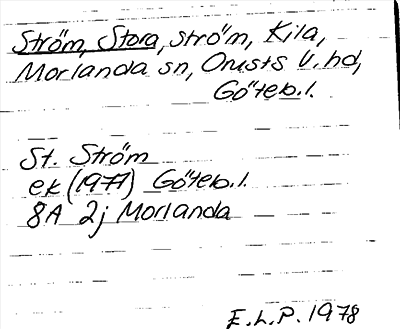 Ström, Stora, Ström, Kila,
Morlanda sn, Orusts V. hd,
Göteb.l.
St. Ström
ek (1977) Göteb.l.
8A 2j Morlanda
E.L.P. 1978